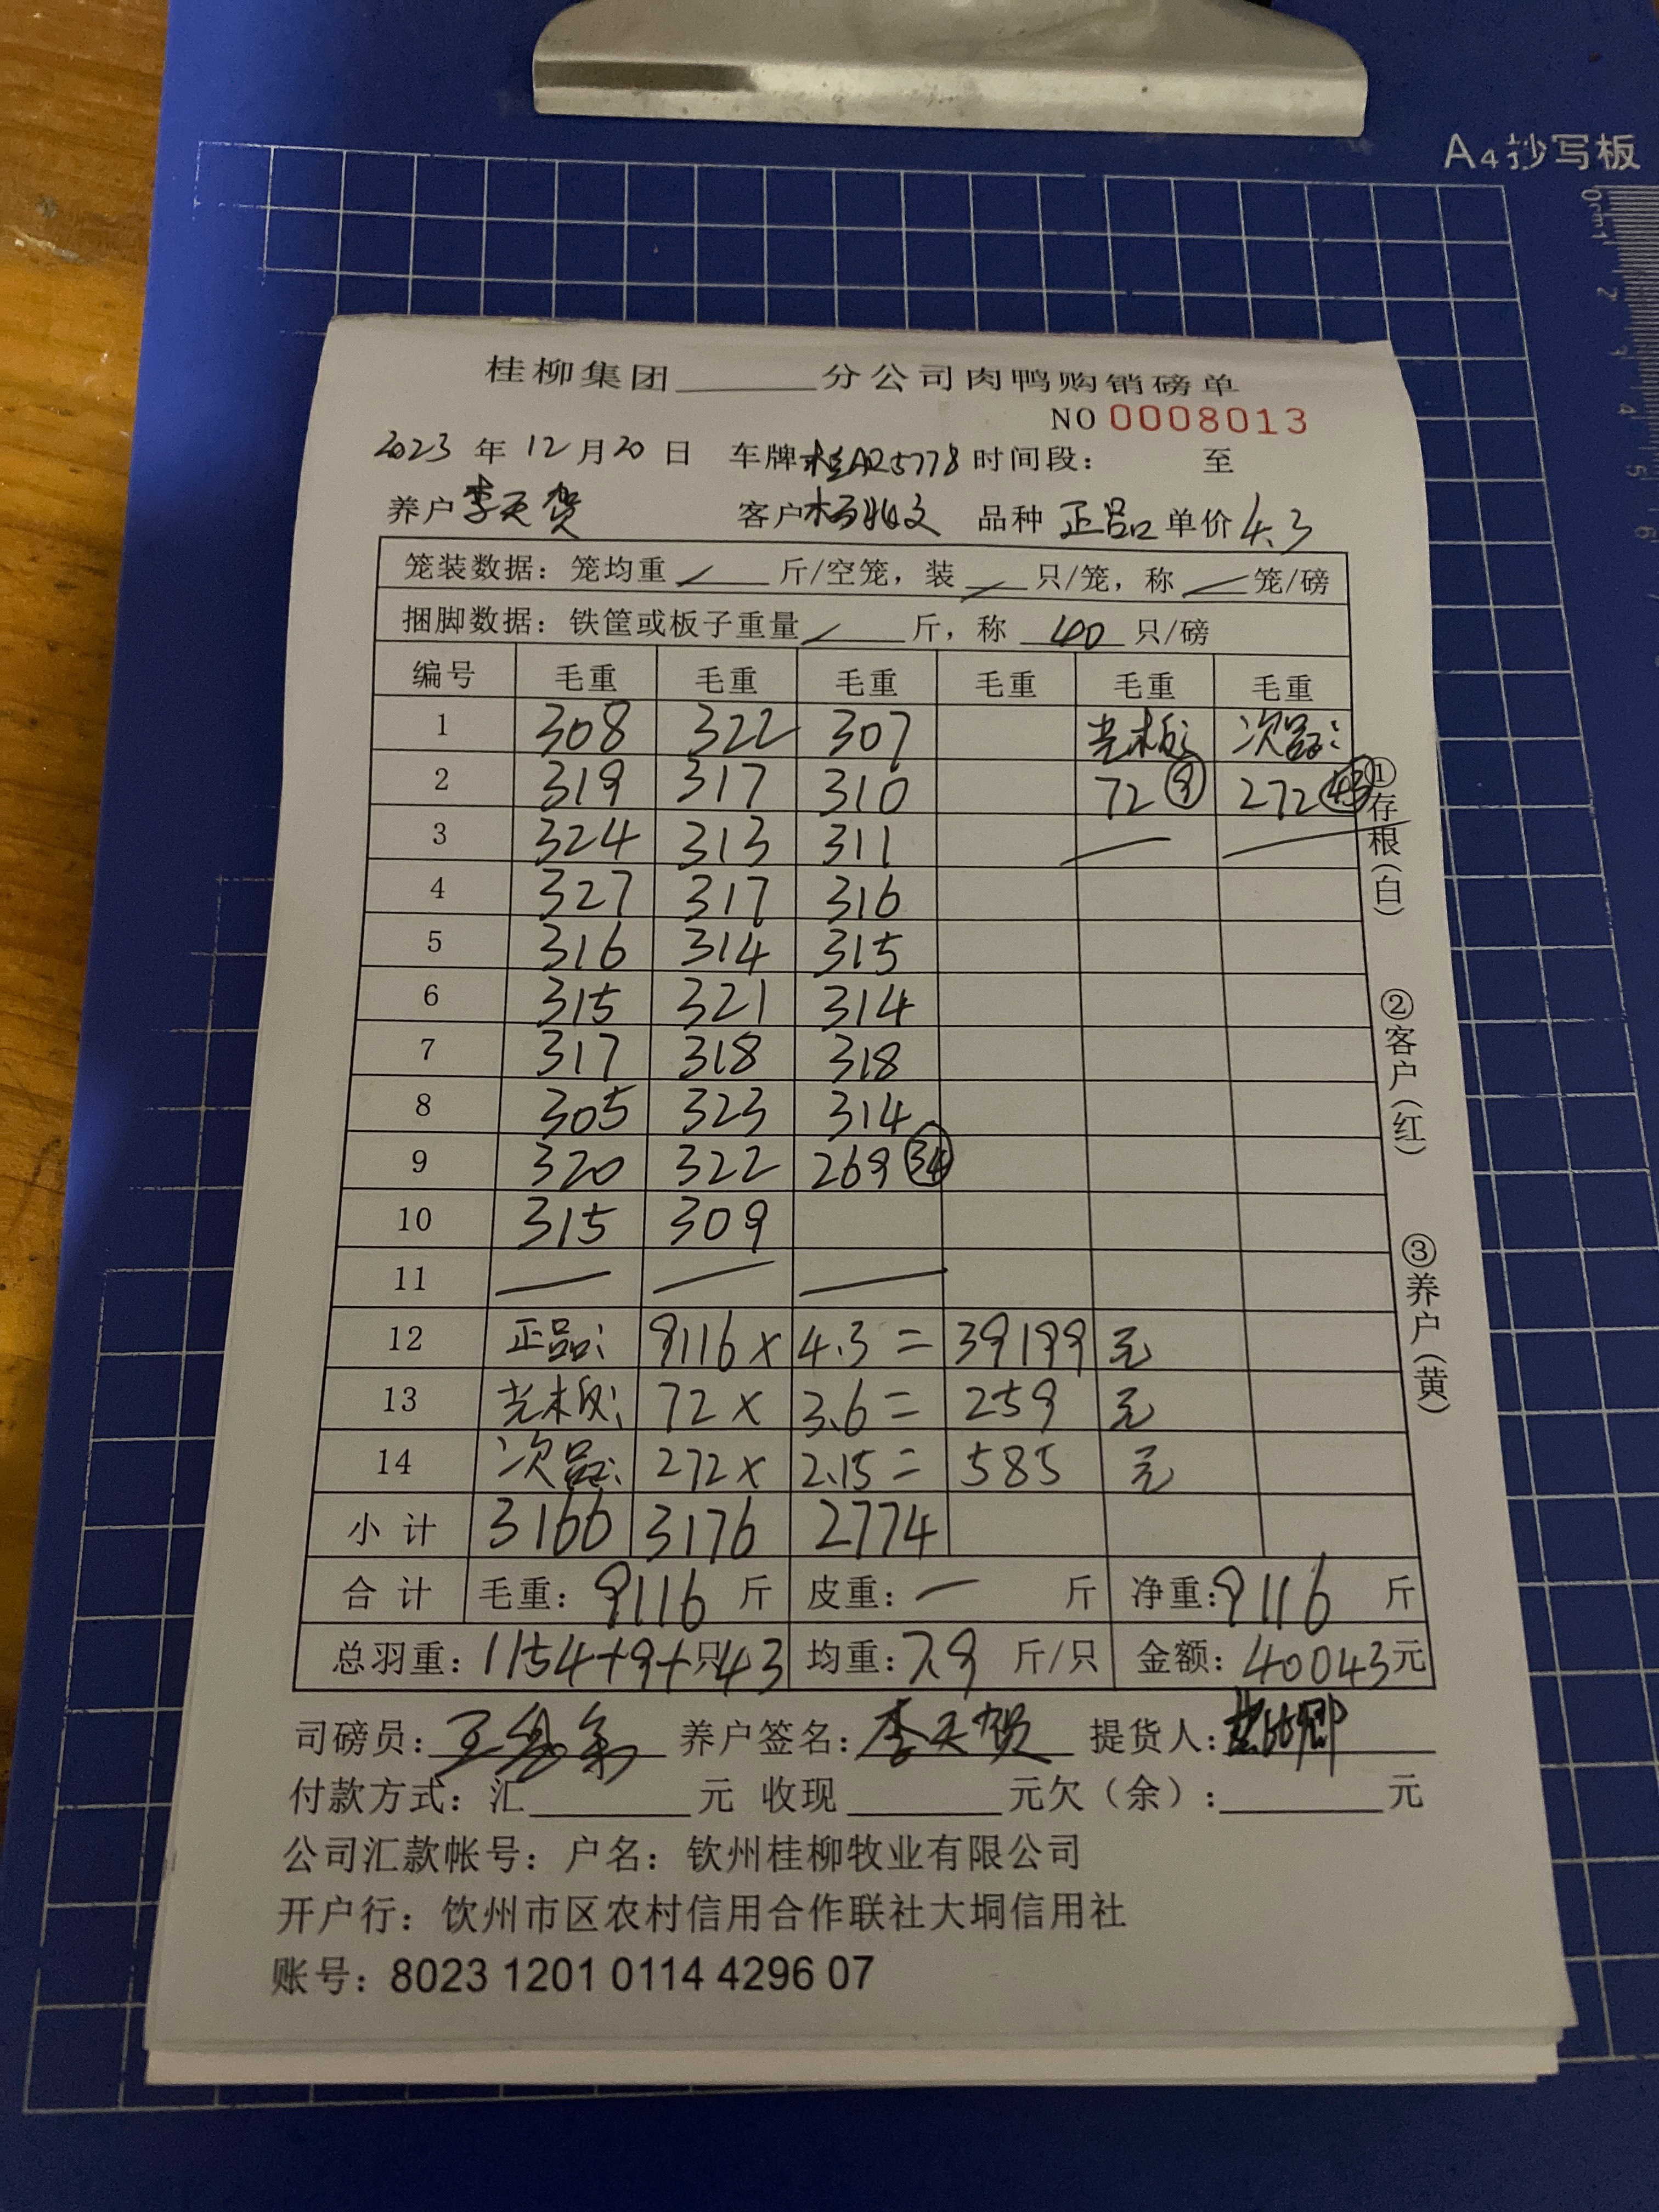 A4抄写板
0cm1 2 3 4 5 6
桂柳集团 分公司肉鸭购销磅单
NO 0008013
2023 年 12 月 20 日 车牌 桂AR5778 时间段: 至
养户 李天贺 客户 杨 文 品种 正品 单价 4.3
笼装数据: 笼均重 / 斤/空笼, 装 / 只/笼, 称 / 笼/磅
捆脚数据: 铁筐或板子重量 / 斤, 称 40 只/磅
编号 毛重 毛重 毛重 毛重 毛重 毛重
1 308 322 307 光板: 次品:
2 319 317 310 72 ⑨ 272 ㊸
3 324 313 311 — —
4 327 317 316
5 316 314 315
6 315 321 314
7 317 318 318
8 305 323 314
9 320 322 269 ㉞
10 315 309
11 — — —
12 正品: 9116 × 4.3 = 39199 元
13 光板: 72 × 3.6 = 259 元
14 次品: 272 × 2.15 = 585 元
小计 3166 3176 2774
合计 毛重: 9116 斤 皮重: — 斤 净重: 9116 斤
总羽重: 1154+9+43 只 均重: 7.9 斤/只 金额: 40043 元
司磅员: 王 养户签名: 李天贺 提货人:
付款方式: 汇 元 收现 元欠(余): 元
公司汇款帐号: 户名: 钦州桂柳牧业有限公司
开户行: 钦州市区农村信用合作联社大垌信用社
账号: 8023 1201 0114 4296 07
①存根(白)
②客户(红)
③养户(黄)